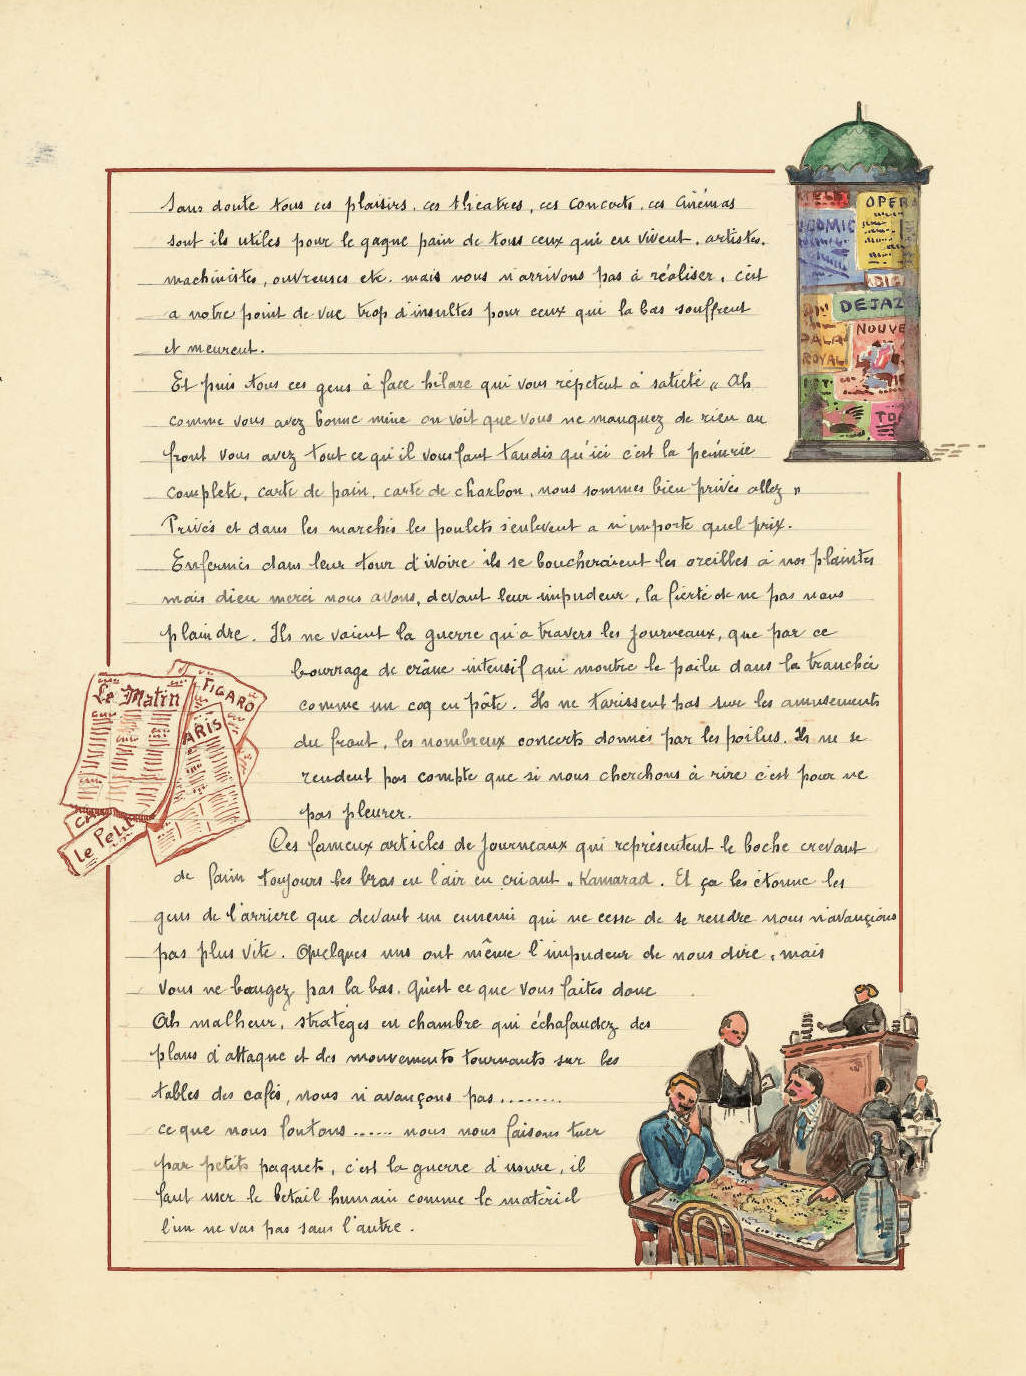 OPER
COMIC
DEJAZ
NOUVE
PALA
ROYAL
Sans doute tous ces plaisirs, ces théatres, ces concerts, ces cinémas
sont ils utiles pour le gagne pain de tous ceux qui en vivent, artistes,
machinistes, ouvreuses etc. mais nous n'arrivons pas à réaliser, c'est
a notre point de vue trop d'insultes pour ceux qui la bas souffrent
et meurent.
Et puis tous ces gens à face hilare qui vous répètent à satiété " Ah
comme vous avez bonne mine on voit que vous ne manquez de rien au
front vous avez tout ce qu'il vous faut tandis qu'ici c'est la pénurie
complète, carte de pain, carte de charbon, nous sommes bien privés allez "
Privés et dans les marchés les poulets s'enlevent a n'importe quel prix.
Enfermés dans leur tour d'ivoire ils se boucheraient les oreilles à nos plaintes
mais dieu merci nous avons, devant leur impudeur, la fierté de ne pas nous
plaindre. Ils ne voient la guerre qu'a travers les journeaux, que par ce
bourrage de crâne intensif qui montre le poilu dans la tranchée
comme un coq en pâte. Ils ne tarissent pas sur les amusements
du front, les nombreux concerts donnés par les poilus. Ils ne se
rendent pas compte que si nous cherchons à rire c'est pour ne
pas pleurer.
Le Matin
FIGARO
PARIS
Le Petit
Ces fameux articles de journeaux qui représentent le boche crevant
de faim toujours les bras en l'air en criant " Kamarad. Et ça les étonne les
gens de l'arrière que devant un ennemi qui ne cesse de se rendre nous n'avançions
pas plus vite. Quelques uns ont même l'impudeur de nous dire, mais
vous ne bougez pas la bas. Qu'est ce que vous faites donc
Ah malheur, stratèges en chambre qui échafaudez des
plans d'attaque et des mouvements tournants sur les
tables des cafés, nous n'avançons pas ........
ce que nous foutons ...... nous nous faisons tuer
par petits paquets, c'est la guerre d'usure, il
faut user le bétail humain comme le matériel
l'un ne vas pas sans l'autre.